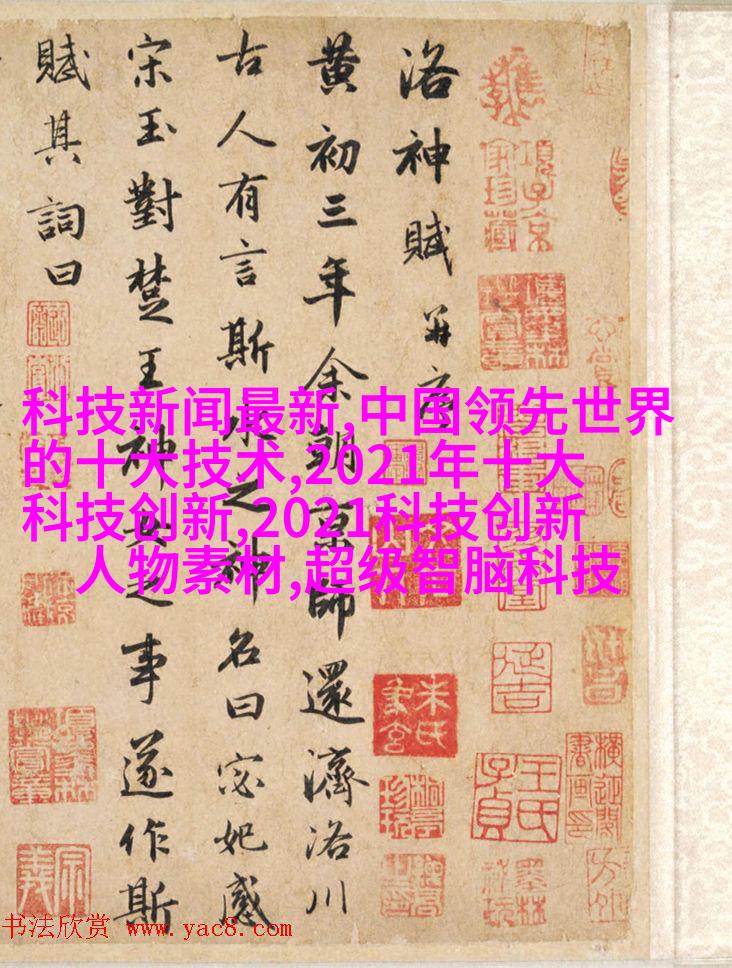 洛神賦并序
黄初三年余朝京師還濟洛川
古人有言斯水之神名曰宓妃感
宋玉對楚王神女之事遂作斯
賦其詞曰
科技新闻最新,中国领先世界
的十大技术,2021年十大
科技创新,2021科技创新
人物素材,超级智脑科技
項子京
家珍藏
朱氏
象玄
王氏
子貞
书法欣赏 www.yac8.com